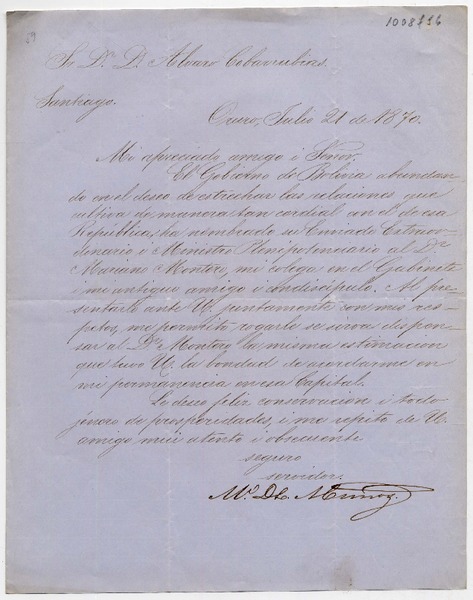 59
1008816
Sr. Dr. D. Alvaro Cobarrubias.
Santiago.
Oruro, Julio 21 de 1870.
Mi apreciado amigo i Señor.
El Gobierno de Bolivia abundan-
do en el deseo de estrechar las relaciones que
cultiva de manera tan cordial con el de esa
República, ha nombrado su Enviado Extraor-
dinario i Ministro Plenipotenciario al Dr.
Mariano Montero, mi colega en el Gabinete
i mi antiguo amigo i condiscípulo. Al pre-
sentarlo ante U. juntamente con mis res-
petos, me permito rogarle se sirva dispen-
sar al Dr. Montero la misma estimacion
que tuvo U. la bondad de acordarme en
mi permanencia en esa Capital.
Le deseo feliz conservacion i todo
jénero de prosperidades, i me repito de U.
amigo mui atento i obsecuente
seguro
servidor.
Mo. Dto. Muñoz.